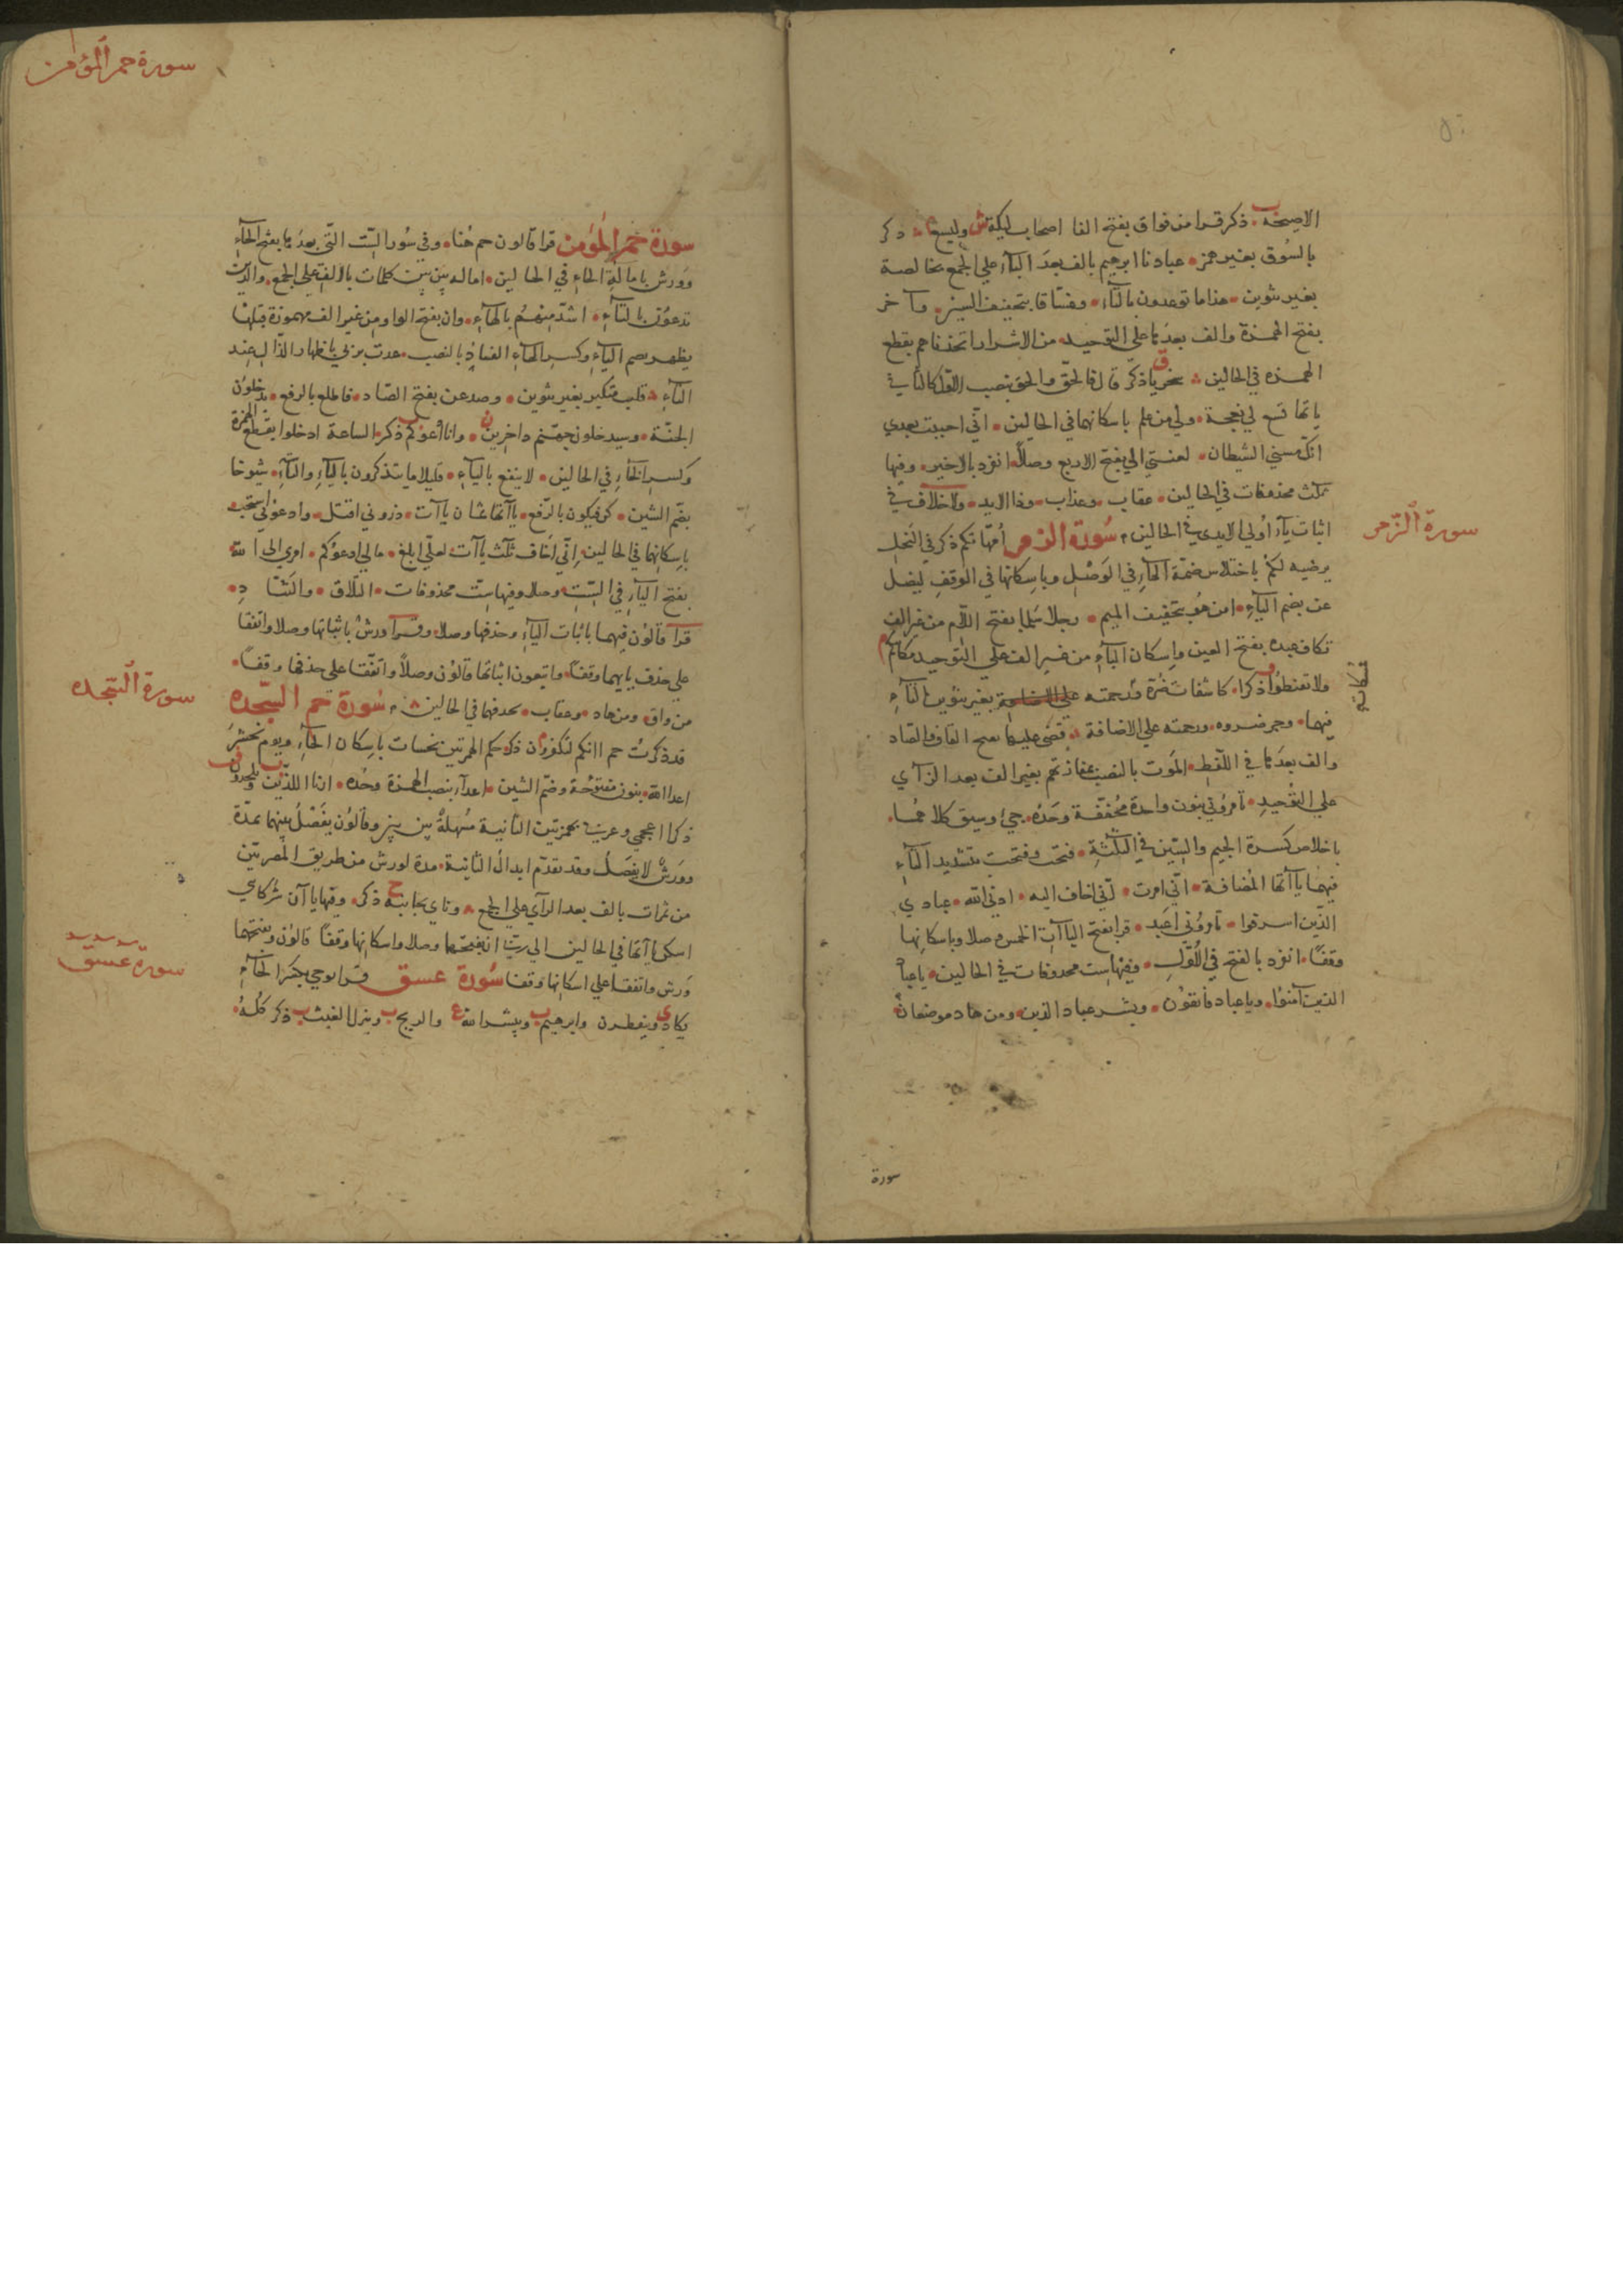 الاصيحة ذكر قرا من فواق بفتح الفا اصحاب ليكة وليسع ذكر
بالسُوق بغير همز عبادنا ابرهيم بالف بعدَ البآء علي الجمع بخالصة
بغير تنوين هذا ما توعدون بالتآء وغسّاقا بتخفيف السين وآخر
بفتح الهمزة والف بعدَها على التوحيد من الاشرار اتخذناهم بقطع
الهمزه في الحالين سخريا ذكر قال فالحق والحق بنصب الاول كالثاني
ياتها تسع لي نعجة ولي من علم باسكانهما في الحالين انّي احببت بعدي
انك مسّني الشيطان لعنتي الي بفتح الاربع وصلاً انفرد بالاخير وفيها
ثلث محذوفات في الحالين عقاب وعذاب وذا الايد ولا خلاف في
اثبات يآء اُولي الايدي في الحالين سُورة الزمر اُمهّاتكم ذكر في النحل
يرضه لكم باختلاس ضمّة الهآء في الوَصْل وباسكانها في الوقف ليضل
عن بضم اليآء امن هُو بتخفيف الميم رجلا سَلما بفتح اللّام من غير الف
بكاف عبده بفتح العين واسكان البآء من غير الف علي التوحيد مكانتكم
ولا تقنطوُا ذكرا كاشفات ضُرّه رحمته بغير تنوين التآء
فيهما وجر ضروه ورحمته علي الاضافة قضى عليها بفتح القاف والضاد
والف بعدَها في اللّفظ الموَت بالنصب بمفازتهم بغير الف بعد الزآي
علي التوْحيدِ تامرُوني بنون واحدة مُخففّة وَحدَهُ جيء وسيق كلاهمُا
باخلاص كسرة الجيم والسّين في الثلثةِ فتحت وفتحت بتشديد التآء
فيهما ياآتها المُضافة انّي امرت انّي اخاف اليه ارادني الله عبادي
الذّين اسرفوا تامرُوني اعَبد قرا بفتح الياآتِ الخمس وصلا وباسكانها
وقفًا انفرد بالفتح في الاُوّلِ وفيها ست محذوفات في الحالين ياعباد
الذين آمنوُا وياعباد فاتقوُن وبشر عباد الذين ومن هاد موضعان
سورة
سورة الزّمر
سورة حم المؤمن
سورة حم المؤمن قرا قالون حم هُنا وفي سُور السّت التّي بعدَها بفتح الحآء
ووَرش بامالة الحآء في الحالين اماله بين بين كلمات بالالف علي الجمع والذين
تدعوُن بالتآء اشدّ منهُمُ بالهآء وان بفتح الواو من غير الف مهموزة قبلها
يظهر بضم اليآء وكسر الهآء الفسادَ بالنصب عدت بربي باظهار الذّال عند
التآء قلب متكبر بغير تنوين وصدعن بفتح الصّاد فاطلع بالرفع يدخلوُن
الجنّة وسيدخلون جهنّم داخِرين وانا اَدعوُكم ذكر الساعة ادخلوا بقطع الهمزة
وكسر الخآء في الحالين لا ينفع باليآءِ قليلا ما يتذكرون باليآءِ والتّآءِ شيوخا
بضَم الشين كن فيكون بالرّفع ياآتها ثمان ياآت ذروني اقتل وادعوني استجب
باسكانها في الحالين اِنّي اَخاف ثلث ياآت لعلّي ابلغ مالي ادعوُكم امري الي الله
بفتح اليآء في السّتِ وصلا وفيها ست محذوفات التلّاق والتنّادِ
قرأ قالوُن فيهما باثبات اليآءِ وحذفها وصلا وقرآ ورشُ باثباتها وصلا واتفقا
علي حذف ياءيهما وقفاً واتبعون اثباتها قالوُن وصلاً واتفّقا علي حذفها وقفاً
من واق ومن هاد وعقاب بحذفها في الحالين سُورة حم السّجده
قد ذكرتُ حم اانكم لتكفرون ذكر حكم الهمزتين نحسات باسكان الحآء ويوم نحشر
اعدا الله بنون مفتوُحة وضمّ الشين اعدآء بنصب الهمزة وحْده ارنا اللذّين ويلحدون
ذكرا اعجمي وعربي بهمزتين الثانية مُسهلةٌ بين بين وقالوُن يفَصْل بينهما بمَدّة
ووَرَشٌ لا يفصَلُ وقد تقدّم ابدالُ الثانية مدة لورش من طريق المصريّين
من ثمرات بالف بعد الرآي علي الجمع ونآي بجانبه ذكر وفيها ياآن شركآي
اسكن ياآتها في الحالين الي ربّي انّ بفتحها وصلا واسكانها وقفًا قالوُن وبفتحها
وَرش واتفقا علي اسكانها وقفا سُورة عسق قرا يوحي بكسر الحآءِ
يكاد وينفطرن وابرهيم ويبشر الله والريح وينزل الغيث ذكر كلُهُ
سورة السّجده
سورة عسق